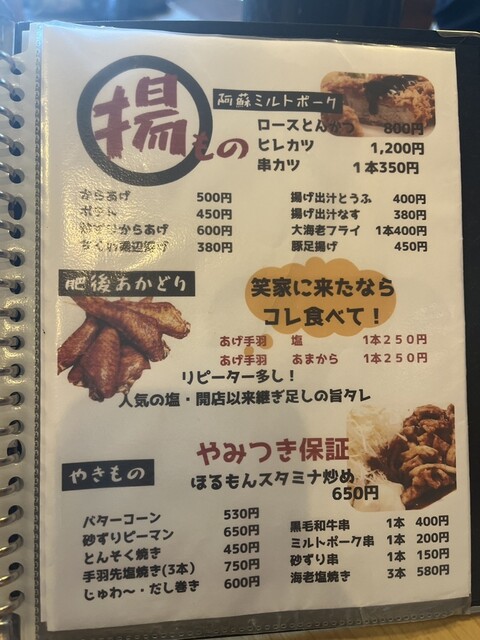 揚もの
阿蘇ミルトポーク
ロースとんかつ 800円
ヒレカツ 1,200円
串カツ 1本350円
からあげ 500円
ポテト 450円
砂ずりからあげ 600円
ちくわ磯辺揚げ 380円
揚げ出汁とうふ 400円
揚げ出汁なす 380円
大海老フライ 1本400円
豚足揚げ 450円
肥後あかどり
笑家に来たなら
コレ食べて！
あげ手羽 塩 1本２５０円
あげ手羽 あまから 1本２５０円
リピーター多し！
人気の塩・開店以来継ぎ足しの旨タレ
やみつき保証
やきもの
ほるもんスタミナ炒め
650円
バターコーン 530円
砂ずりピーマン 650円
とんそく焼き 450円
手羽先塩焼き(3本) 750円
じゅわ〜・だし巻き 600円
黒毛和牛串 1本 400円
ミルトポーク串 1本 200円
砂ずり串 1本 150円
海老塩焼き 3本 580円